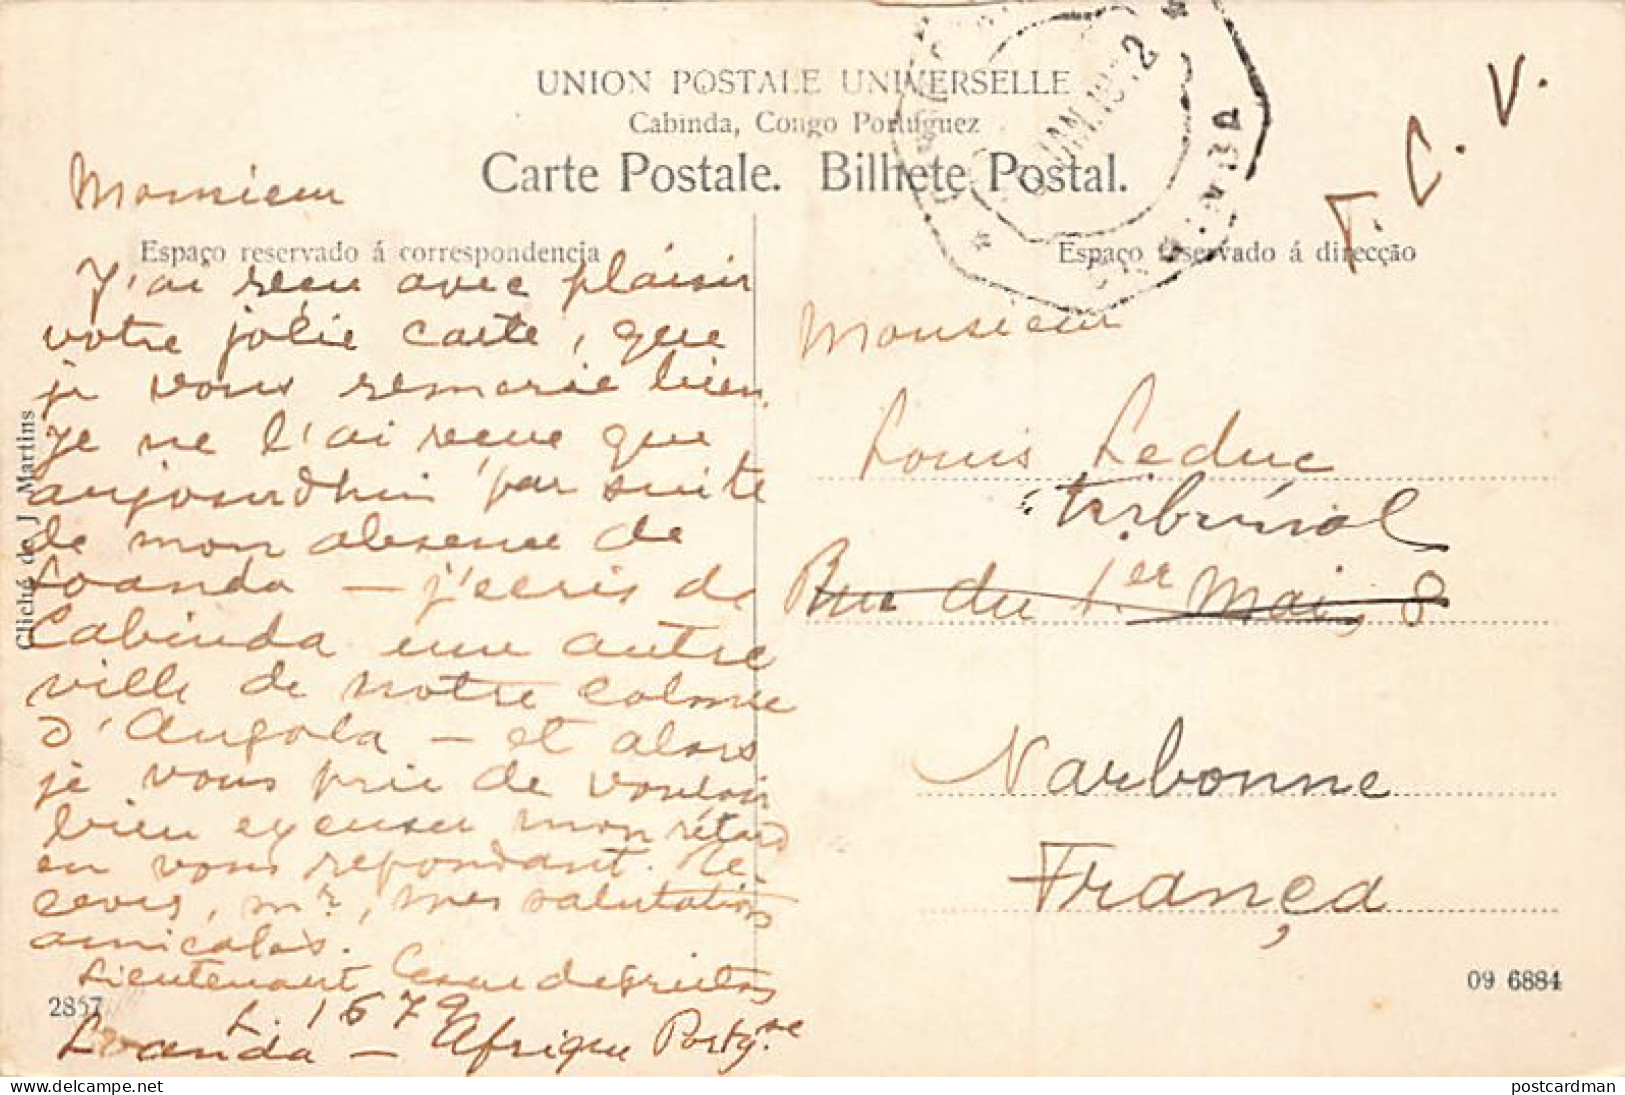 UNION POSTALE UNIVERSELLE
Cabinda, Congo Portuguez
Carte Postale. Bilhete Postal.
T. C. V.
JAN. 1912
Espaço reservado á correspondencia
Espaço reservado á direcção
Monsieur
J'ai reçu avec plaisir
votre jolie carte, que
je vous remercie bien.
Je ne l'ai reçue que
aujourdhui par suite
de mon absence de
Loanda — j'ecris de
Cabinda une autre
ville de notre colonie
d'Angola — et alors
je vous prie de vouloir
bien excuser mon rétard
en vous repondant. Re-
cevez, mr, mes salutations
amicalas.
Lieutenant
L. 1679
Loanda — Afrique Portgse
Monsieur
Louis Leduc
tribúnal
Rue du 1.er Mai, 8
Narbonne
França
Cliché de J Martins
2857
09 6884
postcardman